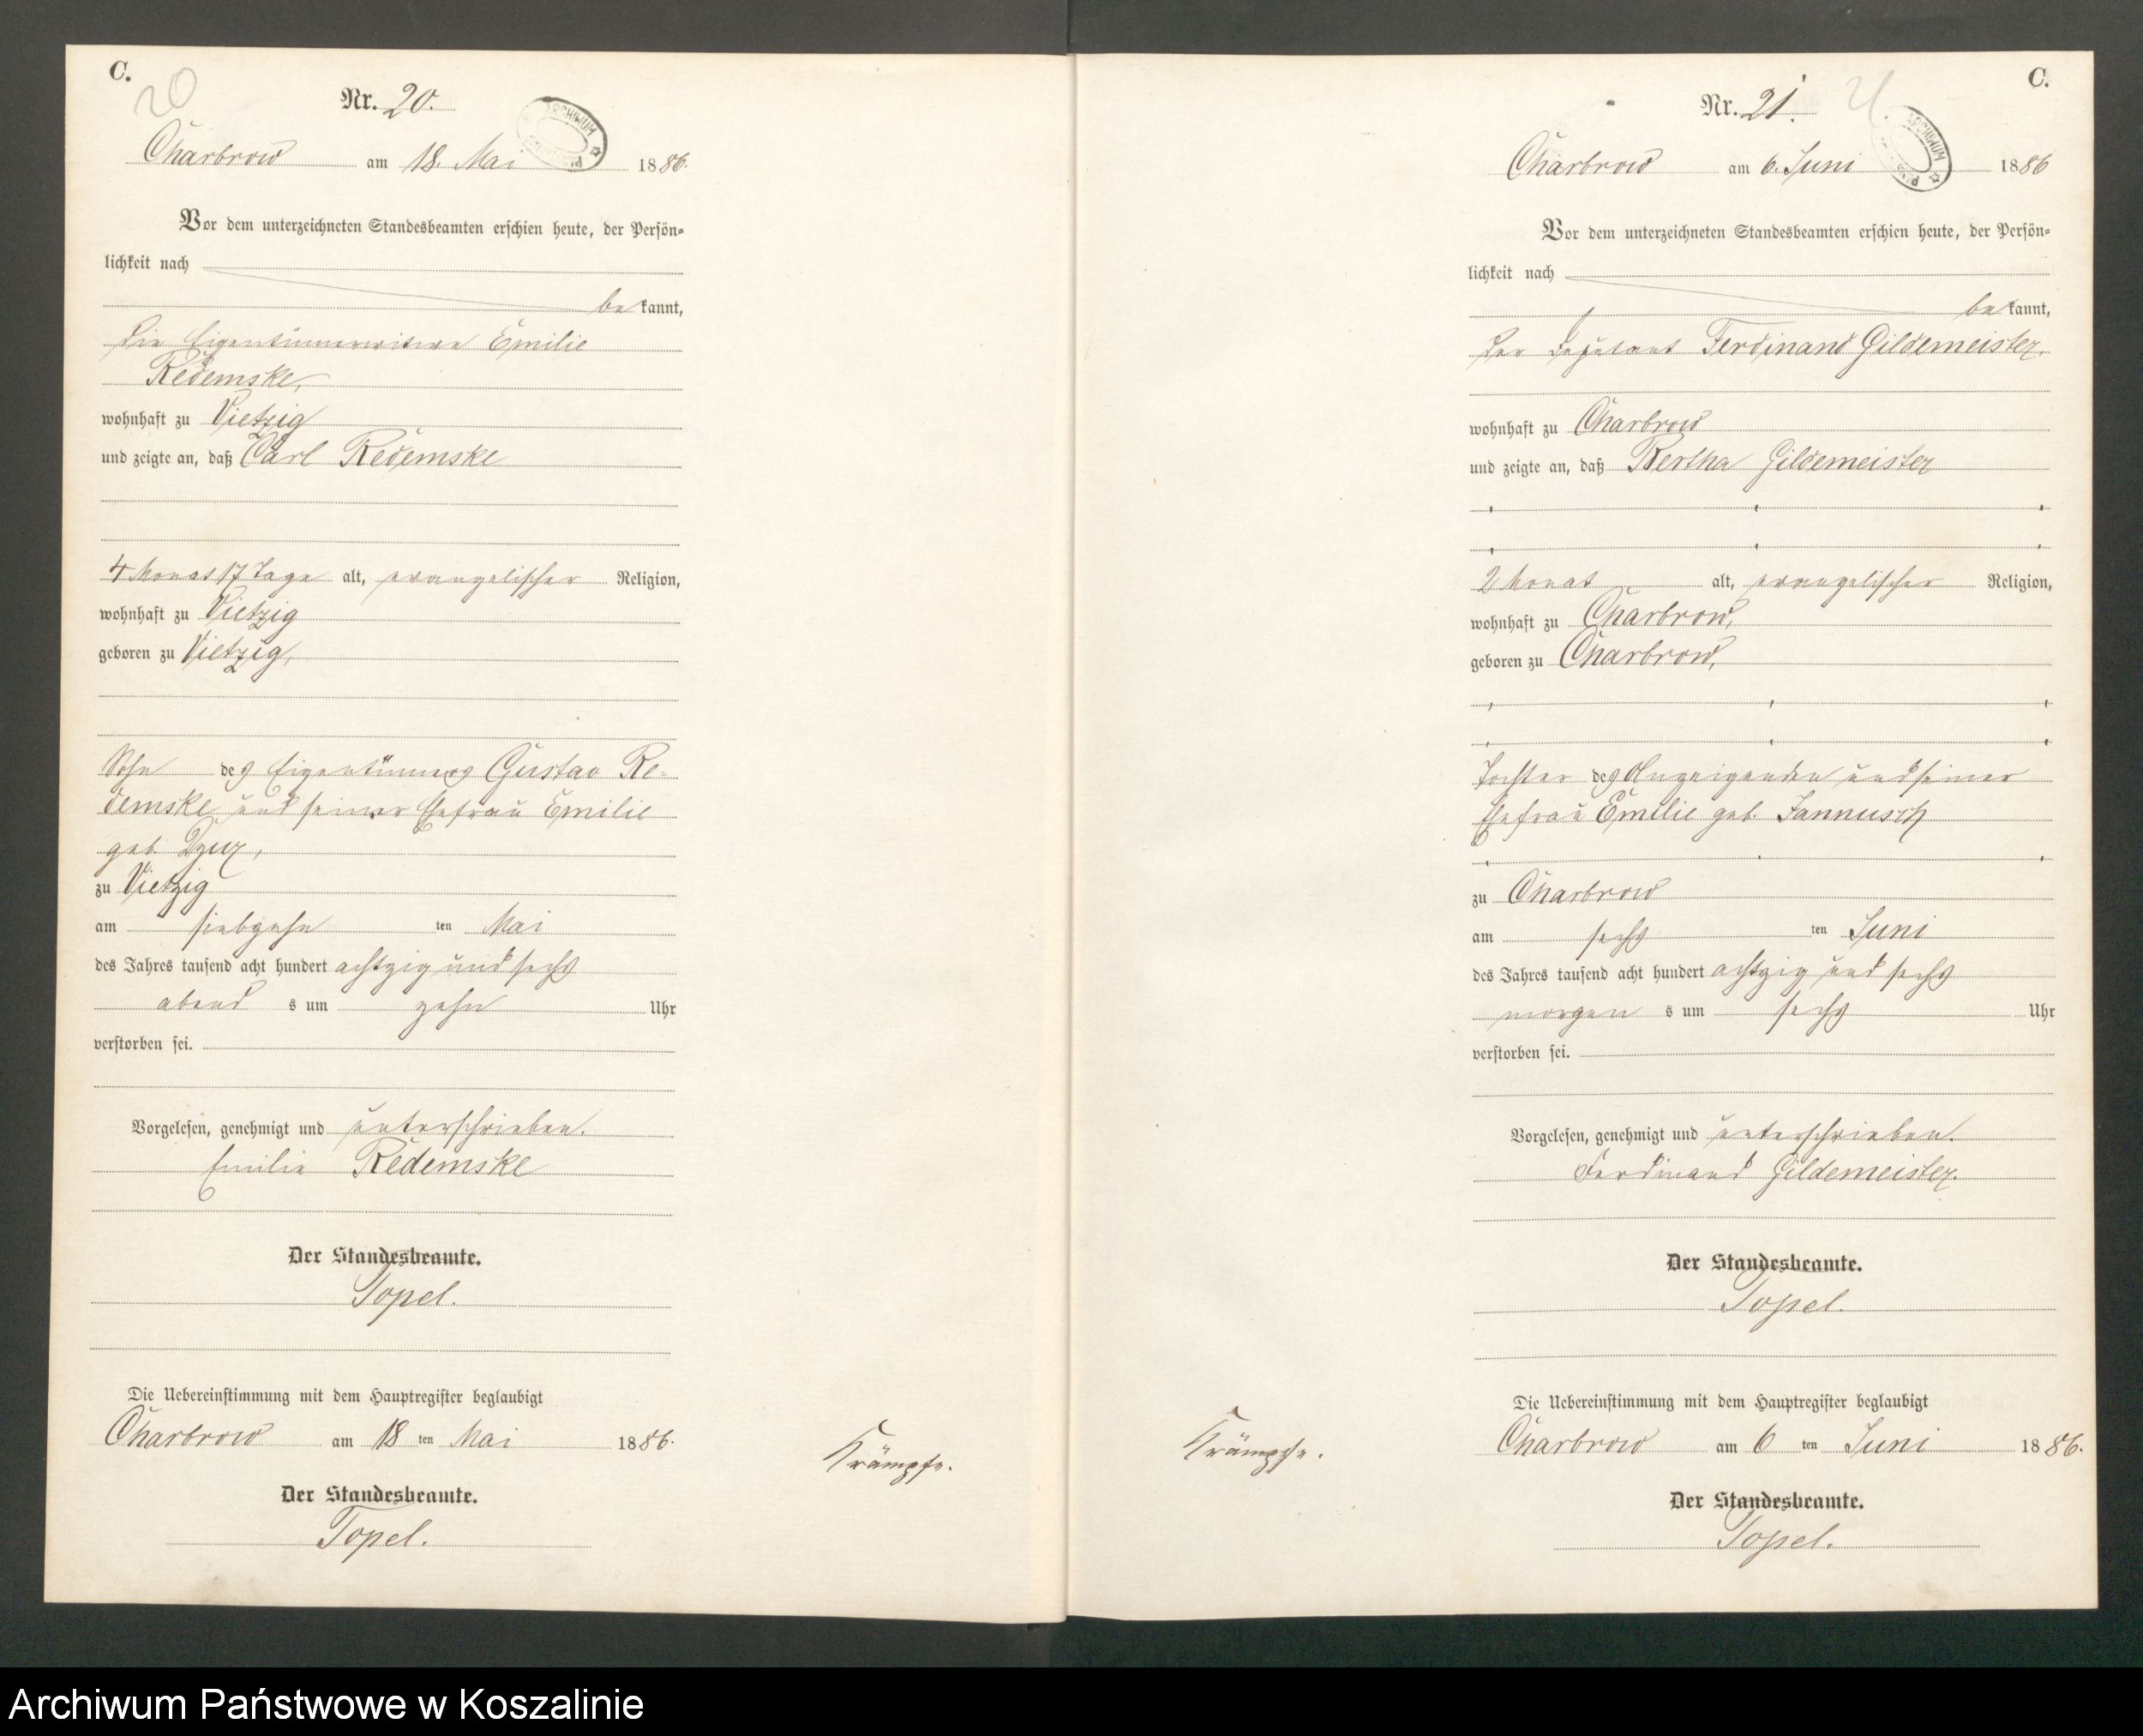 C.
20
Nr. 20.
Charbrow am 18. Mai 1886.
Vor dem unterzeichneten Standesbeamten erschien heute, der Persön-
lichkeit nach
be kannt,
die Eigentümerwitwe Emilie
Redemske,
wohnhaft zu Vietzig
und zeigte an, daß Carl Redemske
4 Monat 17 Tage alt, evangelischer Religion,
wohnhaft zu Vietzig
geboren zu Vietzig,
Sohn des Eigentümers Gustav Re-
demske und seiner Ehefrau Emilie
geb.
zu Vietzig
am siebzehn ten Mai
des Jahres tausend acht hundert achtzig und sechs
abend s um zehn Uhr
verstorben sei.
Vorgelesen, genehmigt und unterschrieben.
Emilie Redemske
Der Standesbeamte.
Topel.
Die Uebereinstimmung mit dem Hauptregister beglaubigt
Charbrow am 18 ten Mai 1886.
Der Standesbeamte.
Topel.
Krämpfe.
C.
21
Nr. 21.
Charbrow am 6. Juni 1886
Vor dem unterzeichneten Standesbeamten erschien heute, der Persön-
lichkeit nach
be kannt,
der Deputant Ferdinand Gildemeister,
wohnhaft zu Charbrow
und zeigte an, daß Bertha Gildemeister
2 Monat alt, evangelischer Religion,
wohnhaft zu Charbrow,
geboren zu Charbrow,
Tochter des Anzeigenden und seiner
Ehefrau Emilie geb. Jannusch
zu Charbrow
am sechs ten Juni
des Jahres tausend acht hundert achtzig und sechs
morgen s um sechs Uhr
verstorben sei.
Vorgelesen, genehmigt und unterschrieben.
Ferdinand Gildemeister.
Der Standesbeamte.
Topel.
Die Uebereinstimmung mit dem Hauptregister beglaubigt
Charbrow am 6 ten Juni 1886.
Der Standesbeamte.
Topel.
Krämpfe.
Archiwum Państwowe w Koszalinie